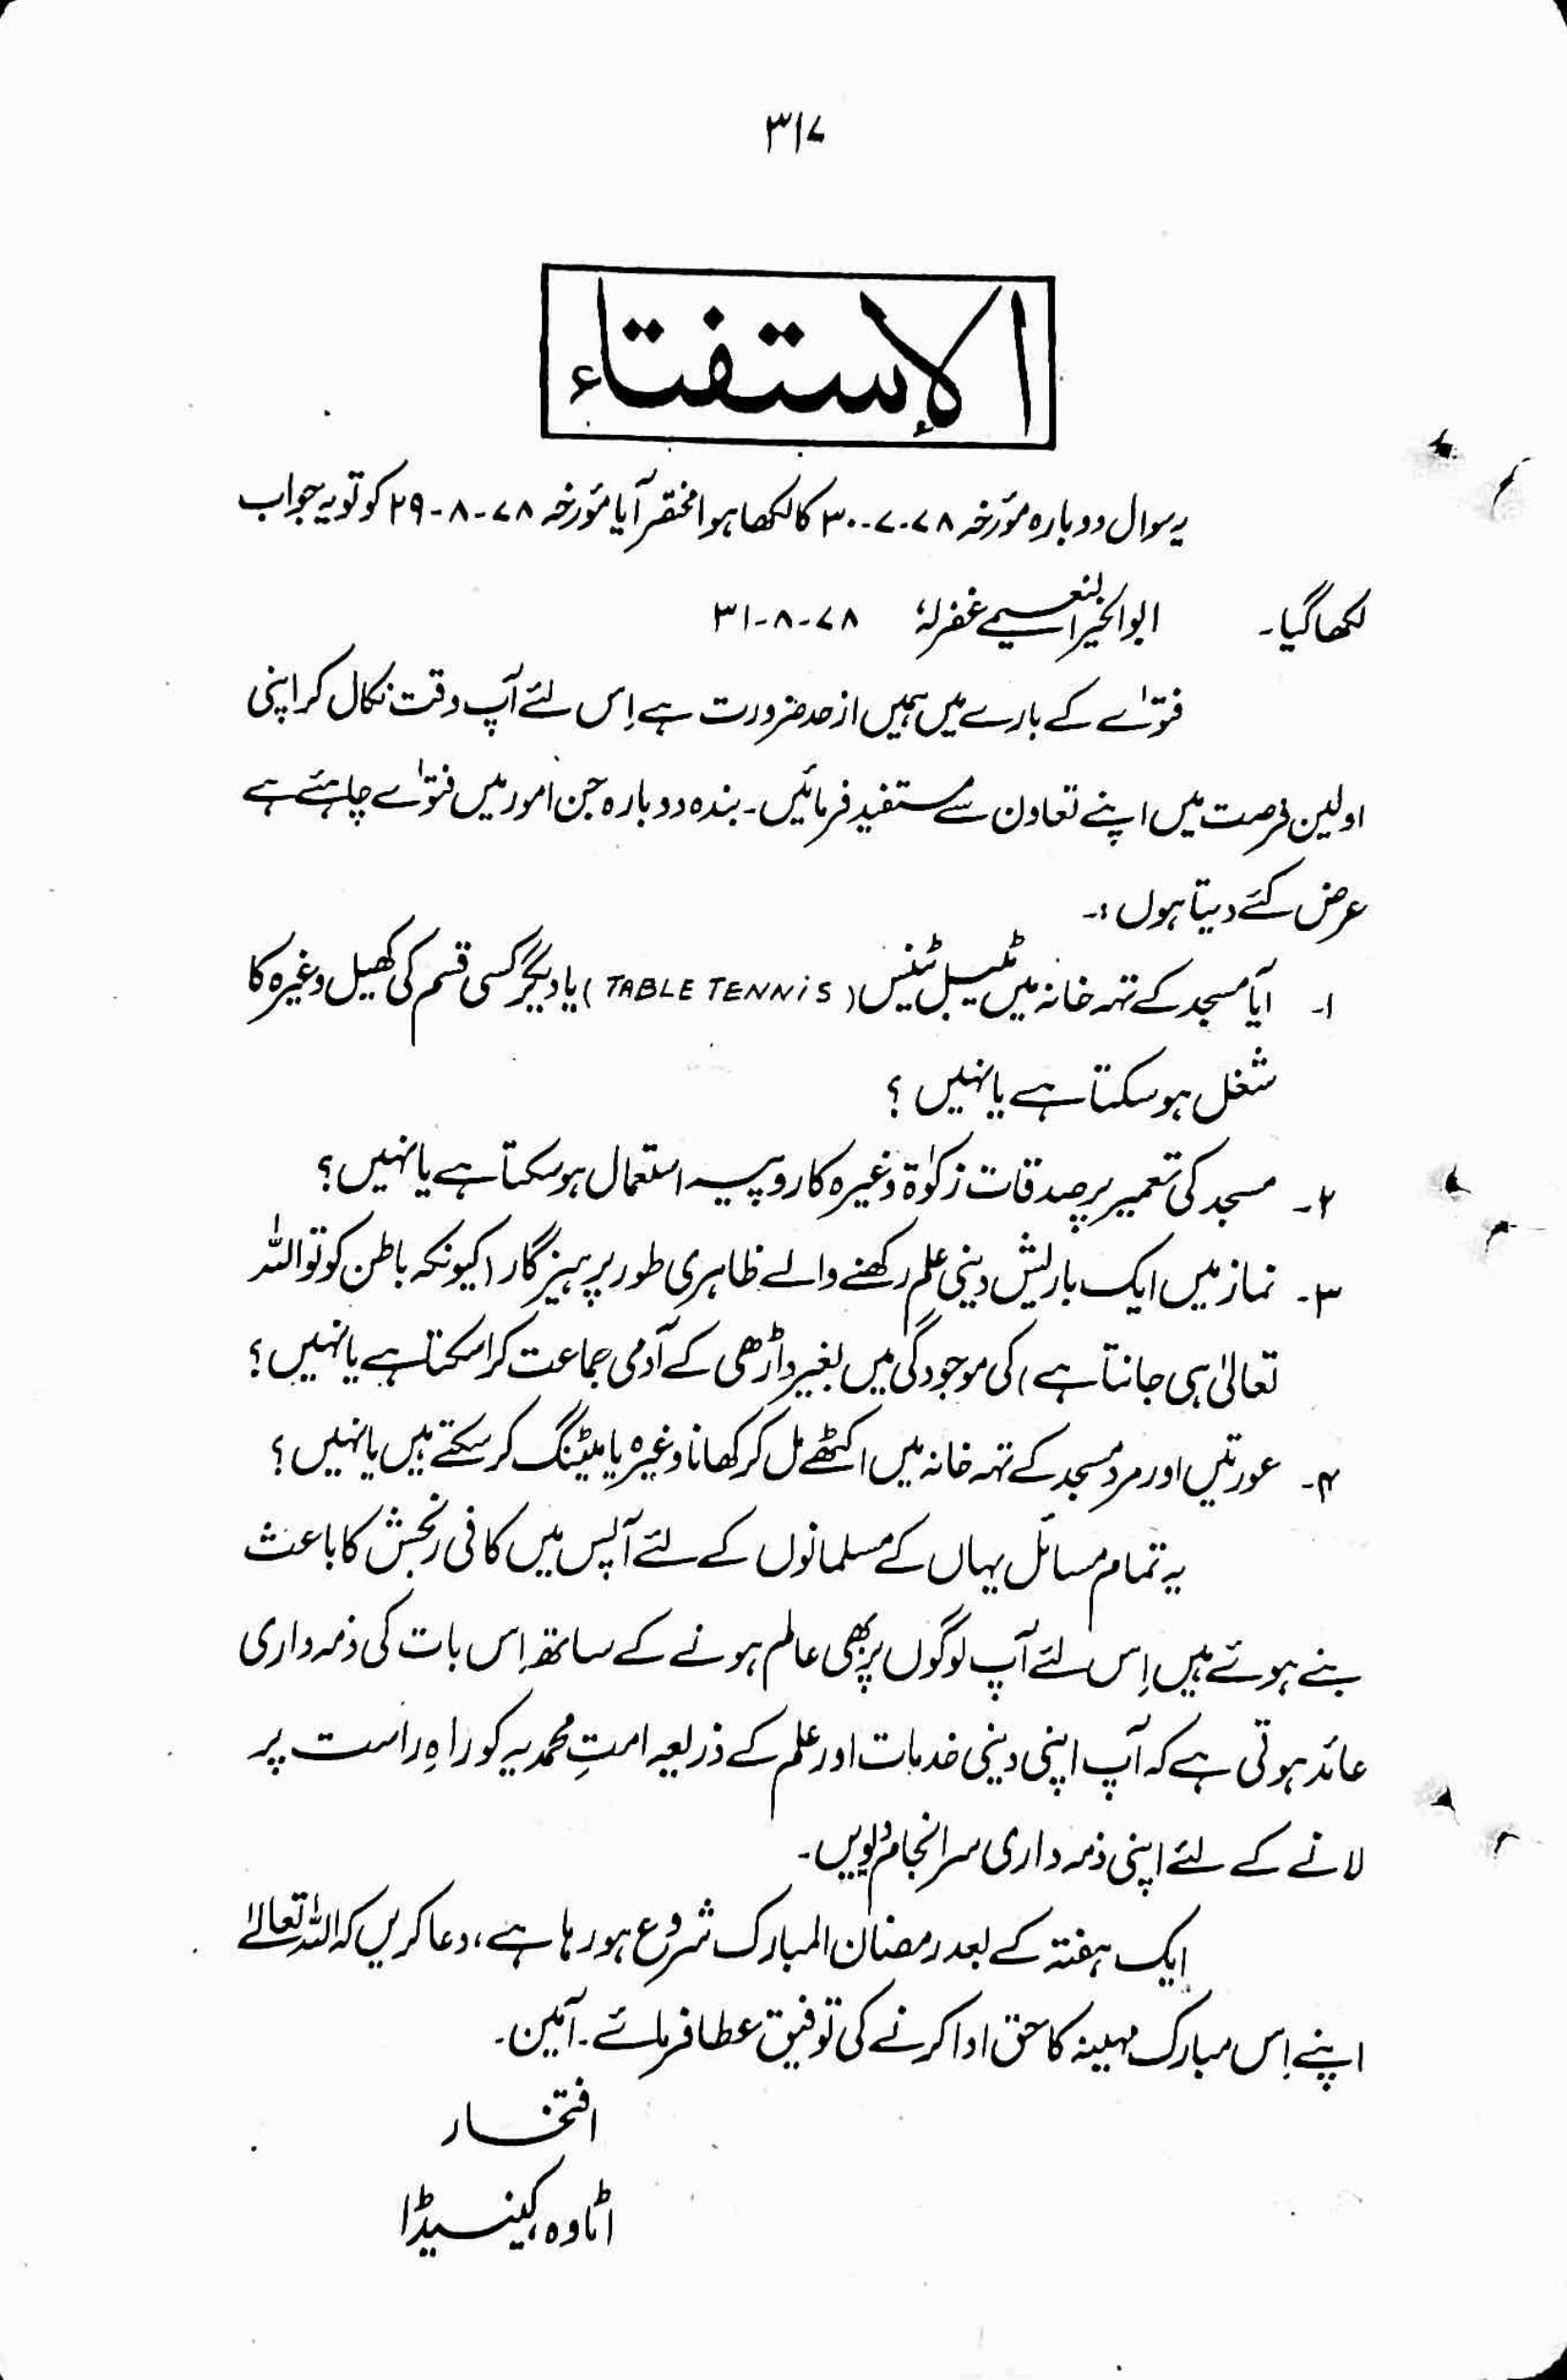 ۳۱۷
الإستفتاء
یہ سوال دوبارہ مؤرخہ ۷۸-۷-۳۰ کا لکھا ہوا مختصر آیا مؤرخہ ۷۸-۸-۲۹ کو تو یہ جواب
لکھا گیا۔ ابوالخیر النعیمی غفرلہٗ ۷۸-۸-۳۱
فتوٰے کے بارے میں ہمیں از حد ضرورت ہے اِس لئے آپ وقت نکال کر اپنی
اولین فرصت میں اپنے تعاون سے مستفید فرمائیں۔ بندہ دوبارہ جن امور میں فتوٰے چاہئے ہے
عرض کئے دیتا ہوں :۔
۱۔ آیا مسجد کے تہہ خانہ میں ٹیبل ٹینس (TABLE TENNiS) یا دیگر کسی قسم کی کھیل وغیرہ کا
شغل ہو سکتا ہے یا نہیں ؟
۲۔ مسجد کی تعمیر پر صدقات زکوٰۃ وغیرہ کا روپیہ استعمال ہو سکتا ہے یا نہیں؟
۳۔ نماز میں ایک باریش دینی علم رکھنے والے ظاہری طور پر ہیزگار (کیونکہ باطن کو تو اللہ
تعالیٰ ہی جانتا ہے) کی موجودگی میں بغیر داڑھی کے آدمی جماعت کرا سکتا ہے یا نہیں؟
۴۔ عورتیں اور مرد مسجد کے تہہ خانہ میں اکٹھے مل کر کھانا وغیرہ یا میٹنگ کر سکتے ہیں یا نہیں ؟
یہ تمام مسائل یہاں کے مسلمانوں کے لئے آپس میں کافی رنجش کا باعث
بنے ہوئے ہیں اِس لئے آپ لوگوں پر بھی عالم ہونے کے ساتھ اِس بات کی ذمہ داری
عائد ہوتی ہے کہ آپ اپنی دینی خدمات اور علم کے ذریعہ امتِ محمدیہ کو راہِ راست پر
لانے کے لئے اپنی ذمہ داری سرانجام دیویں۔
ایک ہفتہ کے بعد رمضان المبارک شروع ہو رہا ہے، دعا کریں کہ اللہ تعالےٰ
اپنے اِس مبارک مہینہ کا حق ادا کرنے کی توفیق عطا فرمائے۔ آمین۔
افتخار
اٹاوہ، کینیڈا